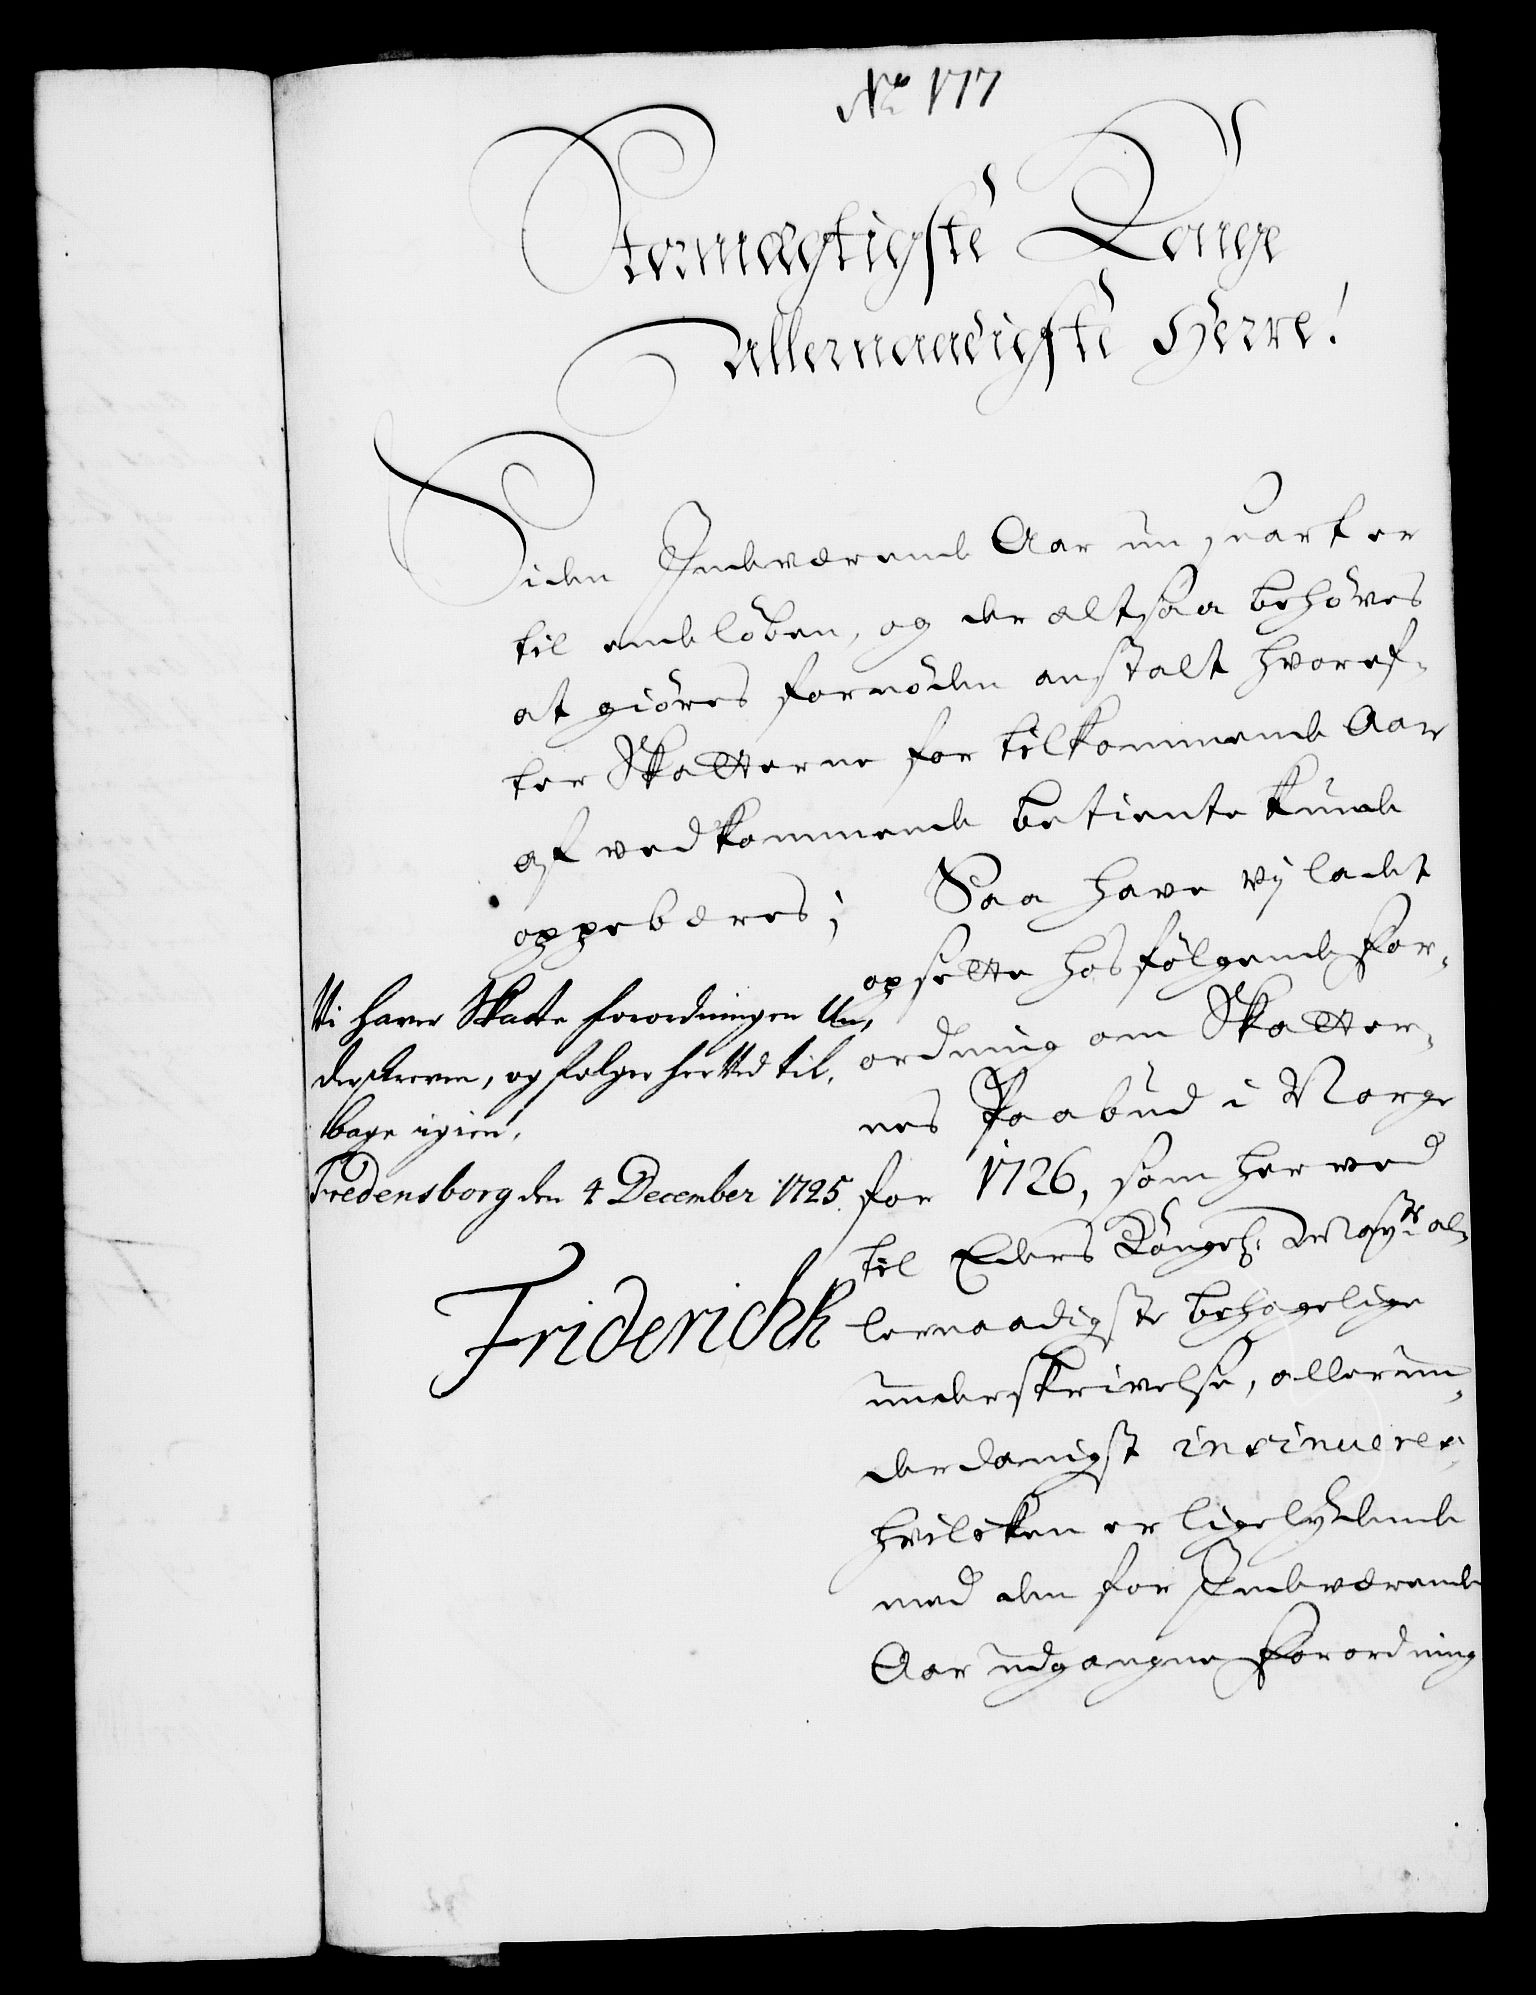 No 177
Stormægtigste Konge
Allernaadigste Herre!
Siden Indeværende Aar nu snart er
til ende løben, og der altsaa behøves
at giøres fornøden anstalt hvoref-
ter Skatterne for tilkommende Aar
af vedkommende betiente kunde
oppebæres; Saa have vij ladet
opsette hosfølgende For-
ordning om Skatter-
nes Paabud i Norge
for 1726, som her ved
til Eders Kongel: Mayts al-
lernaadigste behagelige
underskrivelse, allerun-
derdanigst insinueres,
hvilcken er ligelydende
med den for Indeværende
Aar udgangne Forordning
Vi haver Skatte forordningen Un-
derskreven, og følger her Ved til-
bage igien.
Fredensborg den 4 December 1725.
Friderichh